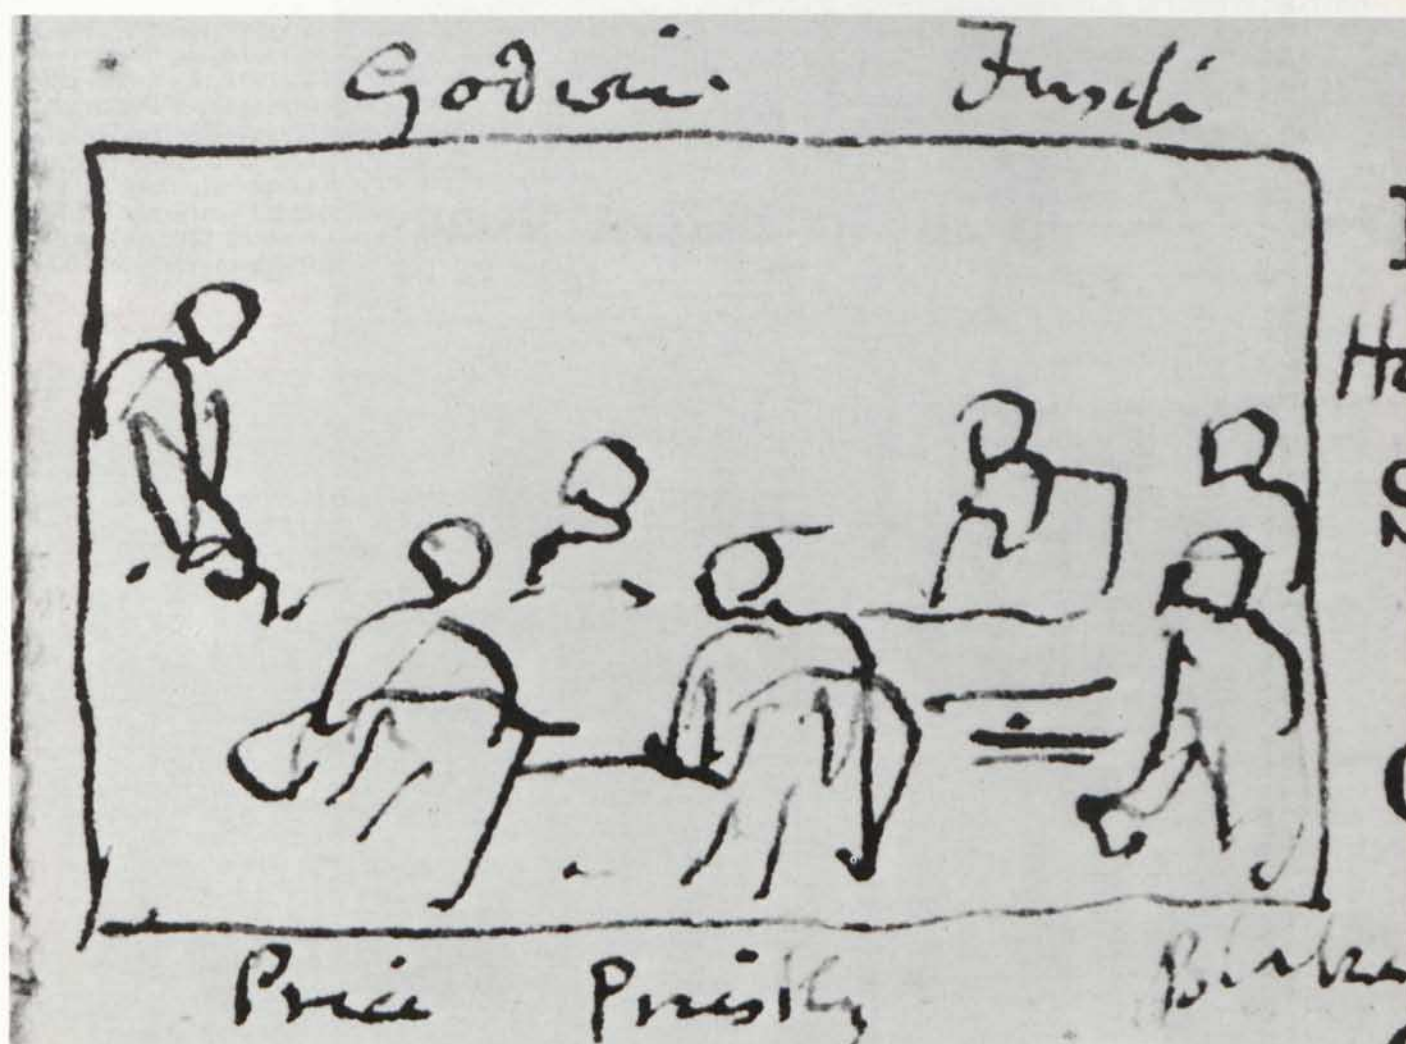 Godwin Fuseli
Ho
Price Pristly Blake